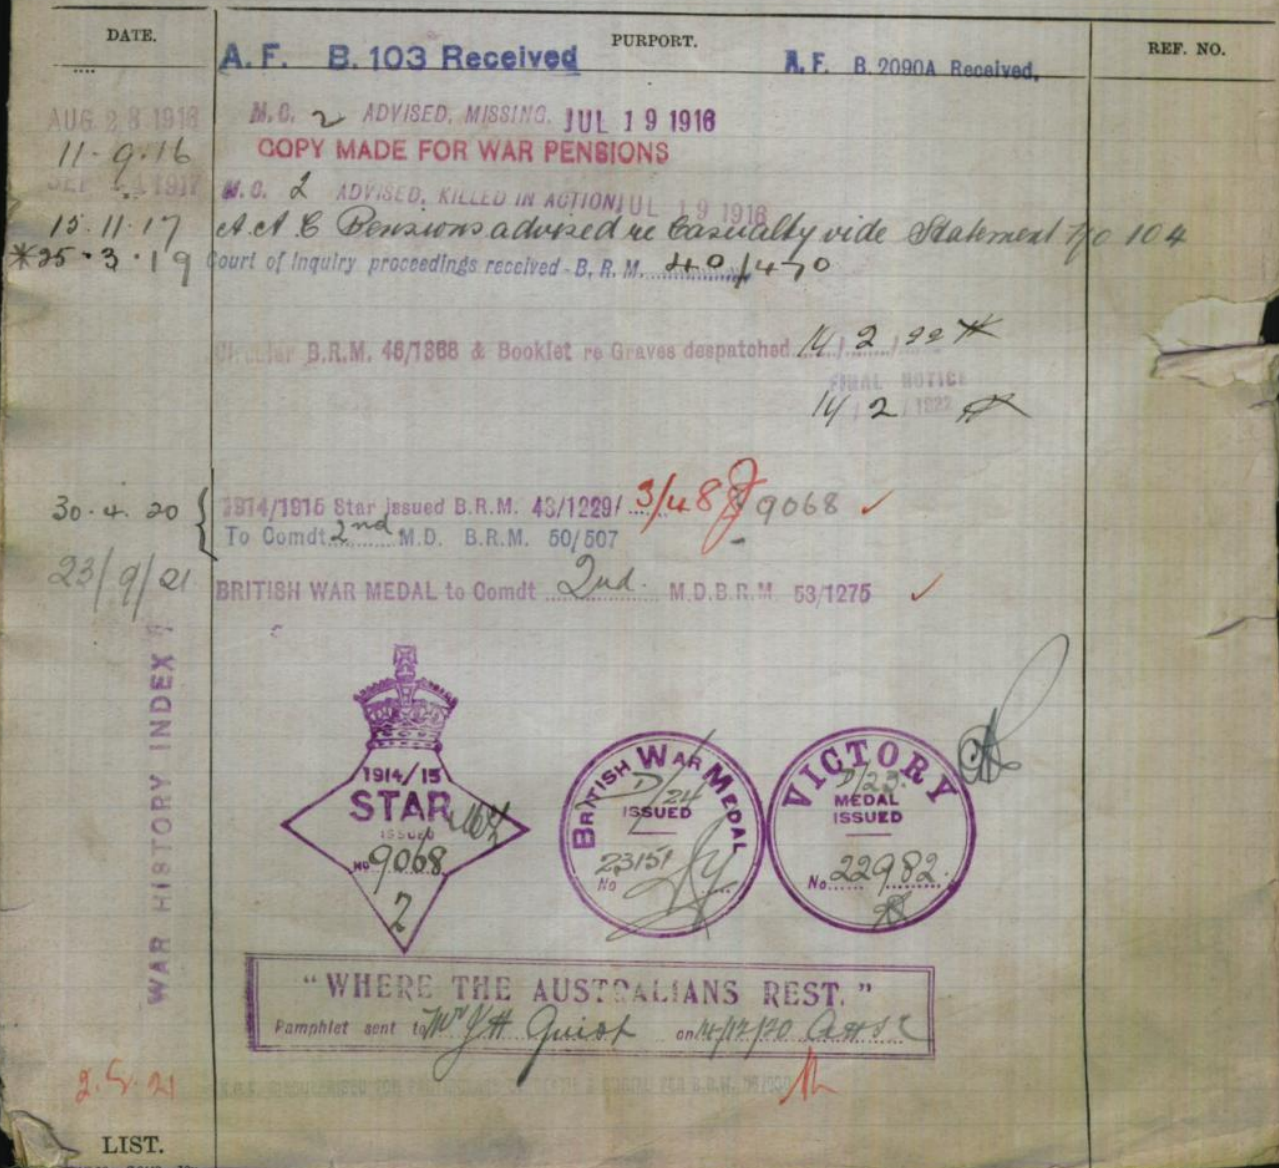 DATE.
PURPORT.
REF. NO.
A. F. B. 103 Received
A. F. B. 2090A Received.
AUG 28 1916
M.C. 2 ADVISED, MISSING. JUL 19 1916
11-9-16
COPY MADE FOR WAR PENSIONS
SEP 1917
M.C. 2 ADVISED, KILLED IN ACTION JUL 19 1916
15.11.17 Pensions advised re Casualty vide Statement No 104
*25.3.19 Court of Inquiry proceedings received - B. R. M. 40/470
Circular B.R.M. 46/1368 & Booklet re Graves despatched 14/2/22
FINAL NOTICE
14/2/1922
30.4.20 1914/1915 Star issued B.R.M. 43/1229/ 3/48 9068 ✓
To Comdt 2nd M.D. B.R.M. 50/507
23/9/21
BRITISH WAR MEDAL to Comdt 2nd. M.D.B.R.M. 53/1275 ✓
WAR HISTORY INDEX
1914/15
STAR
ISSUED
No 9068
2
BRITISH WAR MEDAL
D/24
ISSUED
No 23151
VICTORY
D/23.
MEDAL
ISSUED
No. 22982.
"WHERE THE AUSTRALIANS REST."
Pamphlet sent to Mr J H Quist on 14/12/20
2.5.21
LIST.